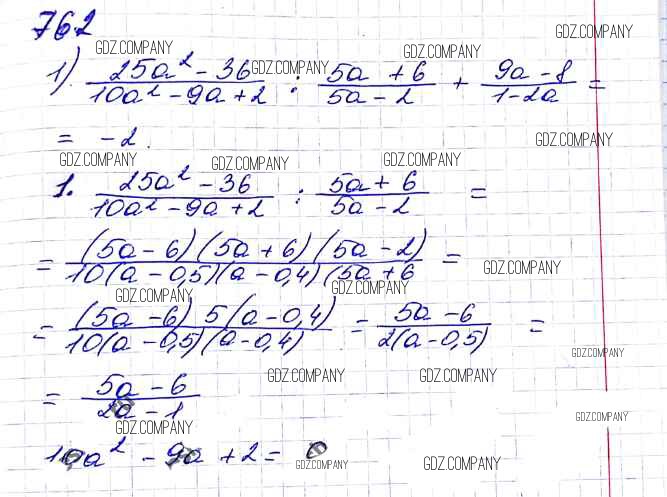 762
GDZ.COMPANY GDZ.COMPANY GDZ.COMPANY
1). (25a² - 36)/(10a² - 9a + 2) : (5a + 6)/(5a - 2) + (9a - 8)/(1 - 2a) =
GDZ.COMPANY
= -2.
GDZ.COMPANY
GDZ.COMPANY GDZ.COMPANY GDZ.COMPANY
1. (25a² - 36)/(10a² - 9a + 2) : (5a + 6)/(5a - 2) =
= ((5a - 6)(5a + 6)(5a - 2))/(10(a - 0,5)(a - 0,4)(5a + 6) =
GDZ.COMPANY
GDZ.COMPANY GDZ.COMPANY
= ((5a - 6) 5(a - 0,4))/(10(a - 0,5)(a - 0,4)) = (5a - 6)/(2(a - 0,5)) =
GDZ.COMPANY
GDZ.COMPANY GDZ.COMPANY
= (5a - 6)/(2a - 1)
GDZ.COMPANY GDZ.COMPANY
10a² - 9a + 2 = 0
GDZ.COMPANY